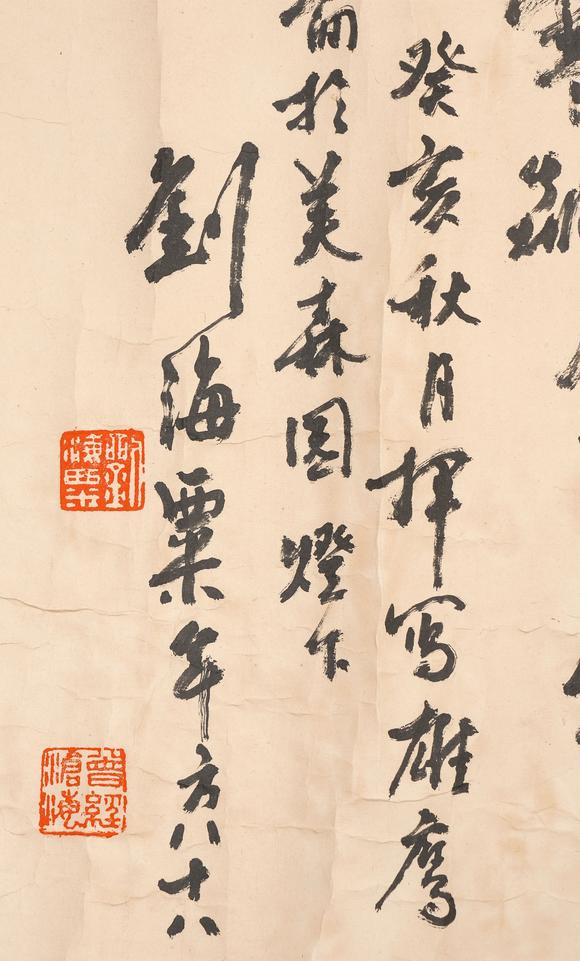 癸亥秋月揮寫雄鷹
於美森園燈下
劉海粟年方八十八
劉海粟
曾經滄海